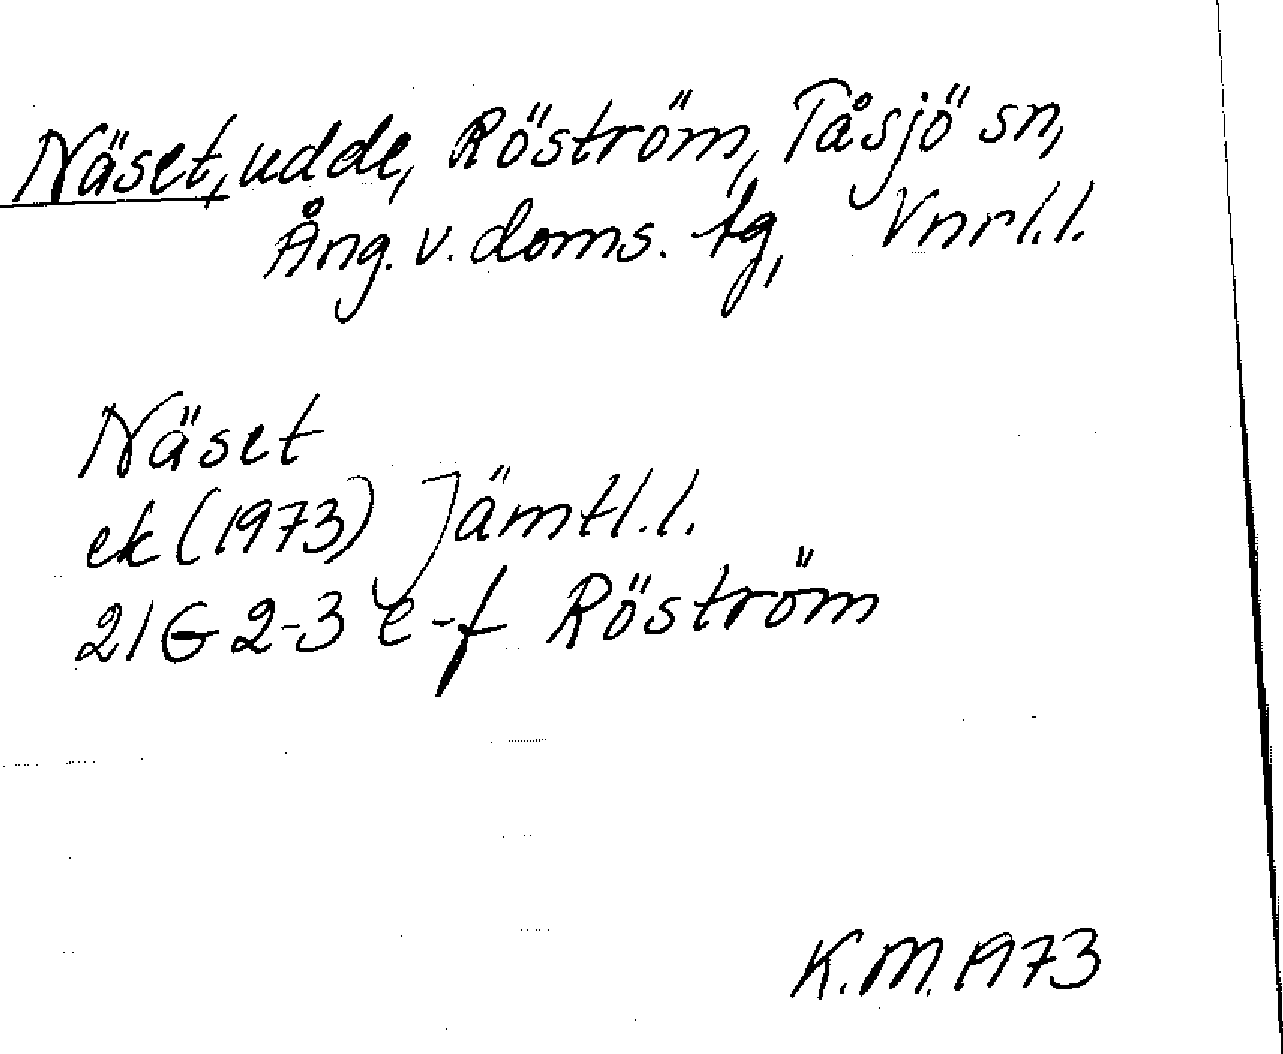 Näset, udde, Röström, Tåsjö sn,
Ång. v. doms. tg, Vnrl.l.
Näset
ek (1973) Jämtl.l.
21G 2-3 e-f Röström
K.M. 1973